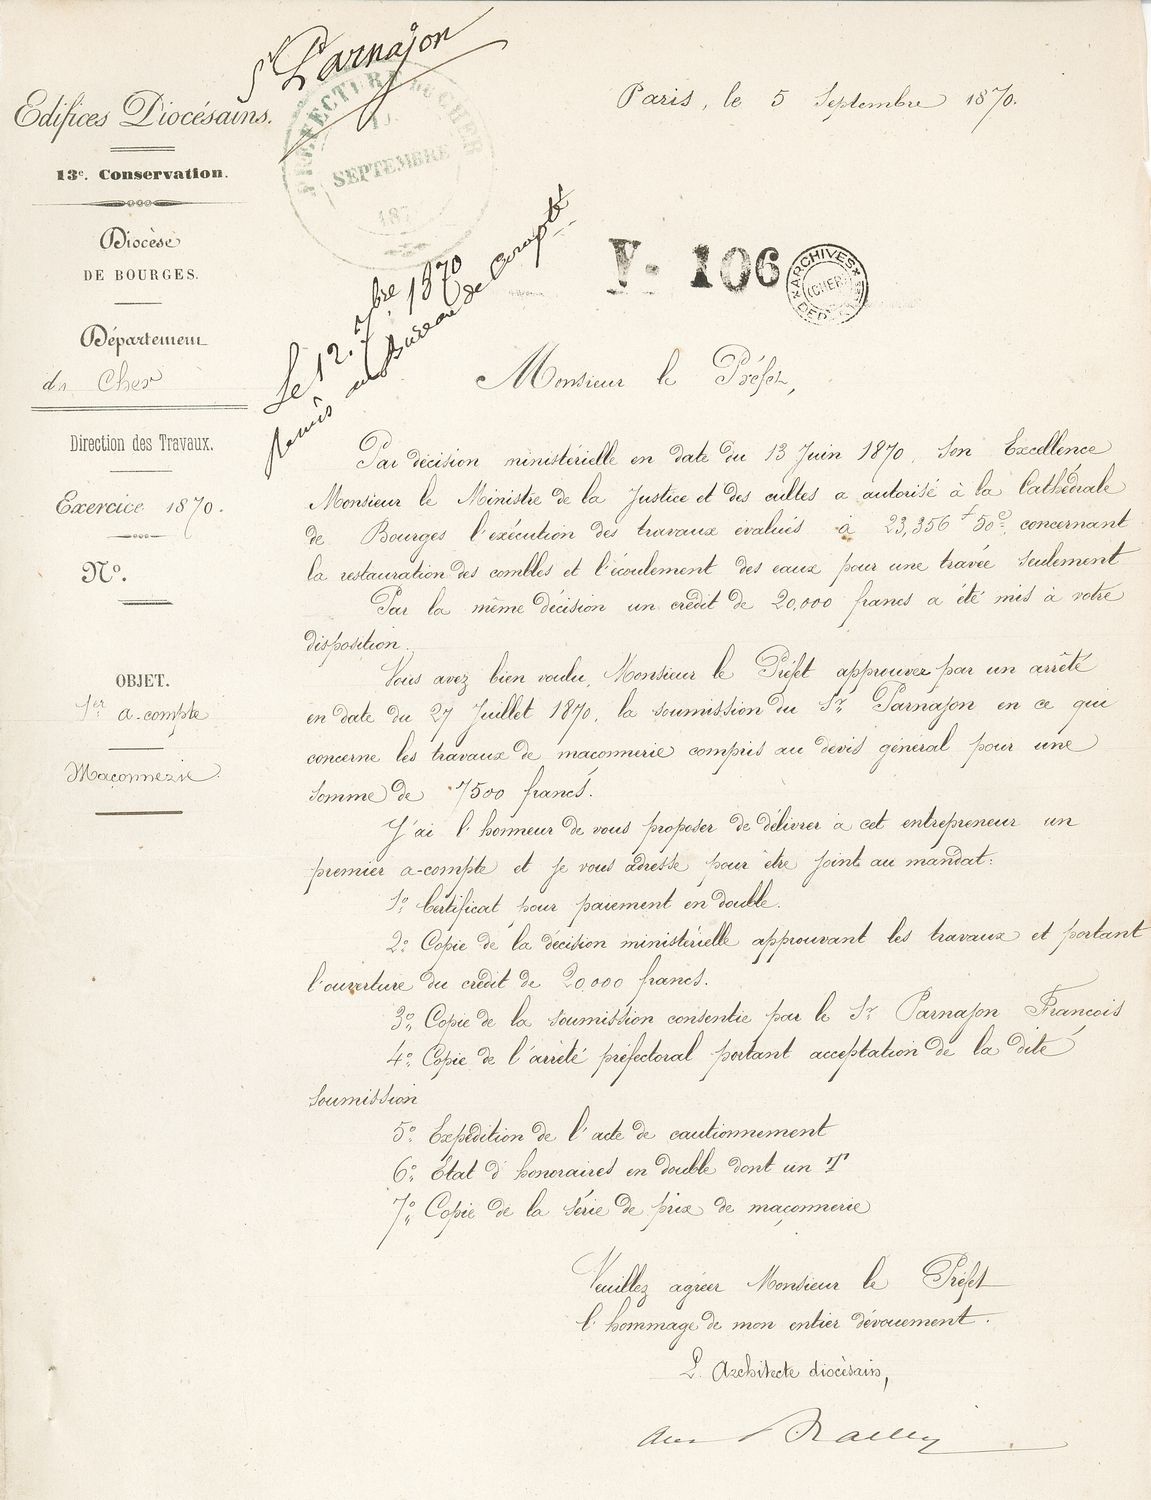 Sr Parnajon
Edifices Diocésains.
13e. Conservation.
Diocèse
DE BOURGES.
Département
du Cher
Direction des Travaux.
Exercice 1870.
No.
OBJET.
1er a-compte
Maçonnerie
PRÉFECTURE DU CHER
SEPTEMBRE
187
Le 12. 7bre. 1870
remis au Bureau de Compté
Paris, le 5 Septembre 1870.
V. 106
ARCHIVES
CHER
Monsieur le Préfet,
Par décision ministérielle en date du 13 Juin 1870, Son Excellence
Monsieur le Ministre de la Justice et des cultes a autorisé à la Cathédrale
de Bourges l'exécution des travaux évalués à 23,356 f 50 c. concernant
la restauration des combles et l'écoulement des eaux pour une travée seulement
Par la même décision un crédit de 20,000 francs a été mis à votre
disposition.
Vous avez bien voulu, Monsieur le Préfet approuver par un arrêté
en date du 27 Juillet 1870, la soumission du Sr Parnajon en ce qui
concerne les travaux de maçonnerie compris au devis général pour une
somme de 7500 francs.
J'ai l'honneur de vous proposer de délivrer à cet entrepreneur un
premier a-compte et je vous adresse pour être joint au mandat:
1o. Certificat pour paiement en double.
2o. Copie de la décision ministérielle approuvant les travaux et portant
l'ouverture du crédit de 20,000 francs.
3o. Copie de la soumission consentie par le Sr Parnajon François
4o. Copie de l'arrêté préfectoral portant acceptation de la dite
soumission
5o. Expédition de l'acte de cautionnement
6o. Etat d'honoraires en double dont un T
7o. Copie de la série de prix de maçonnerie
Veuillez agréer Monsieur le Préfet
l'hommage de mon entier dévouement.
L'Architecte diocésain,